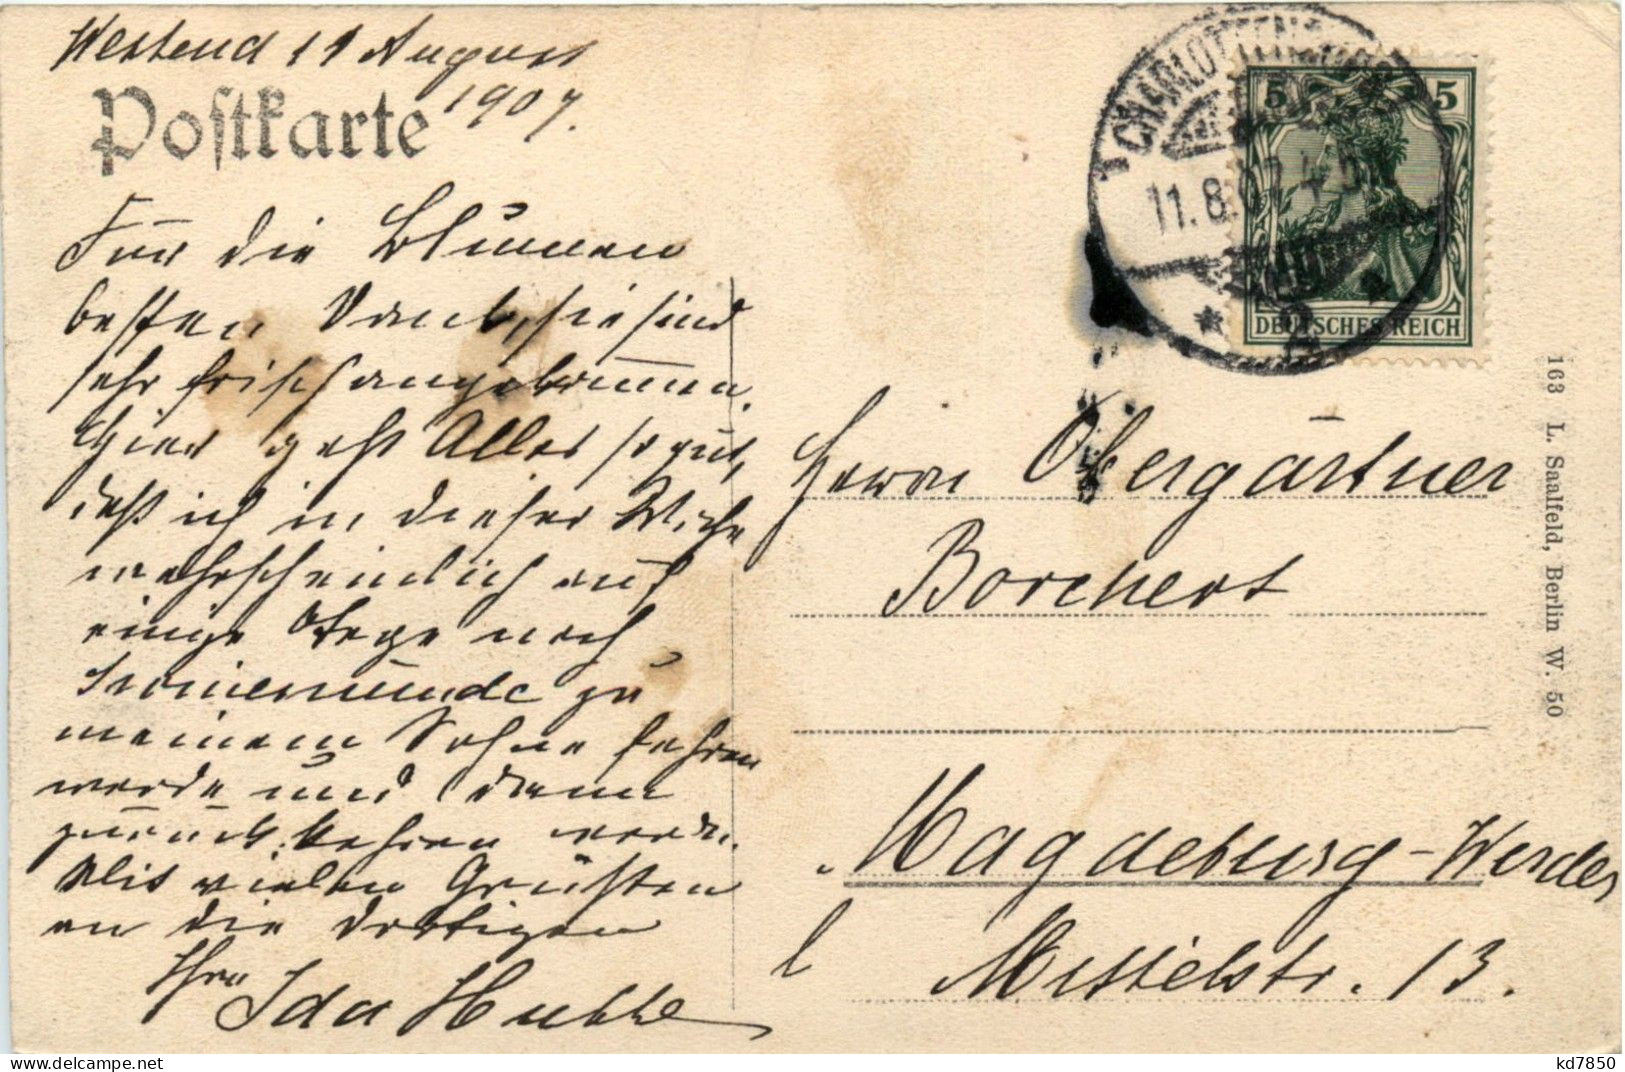 Westend 11 August
1907.
Postkarte
Für die Blumen
besten Dank, sie sind
sehr frisch angekommen.
Hier geht Alles so gut,
daß ich in dieser Woche
wahrscheinlich auf
einige Tage nach
Swinemünde zu
meinem Sohne fahren
werde und dann
zurück kehren werde.
Mit vielen Grüßen
an die dortigen
Ihre
Ida
CHARLOTTENBURG
11.8.07.4-5
2
5 5
DEUTSCHES REICH
Herrn Obergärtner
Borchert
Magdeburg-Werder
Mittelstr. 13.
163 L. Saalfeld, Berlin W. 50
kd7850